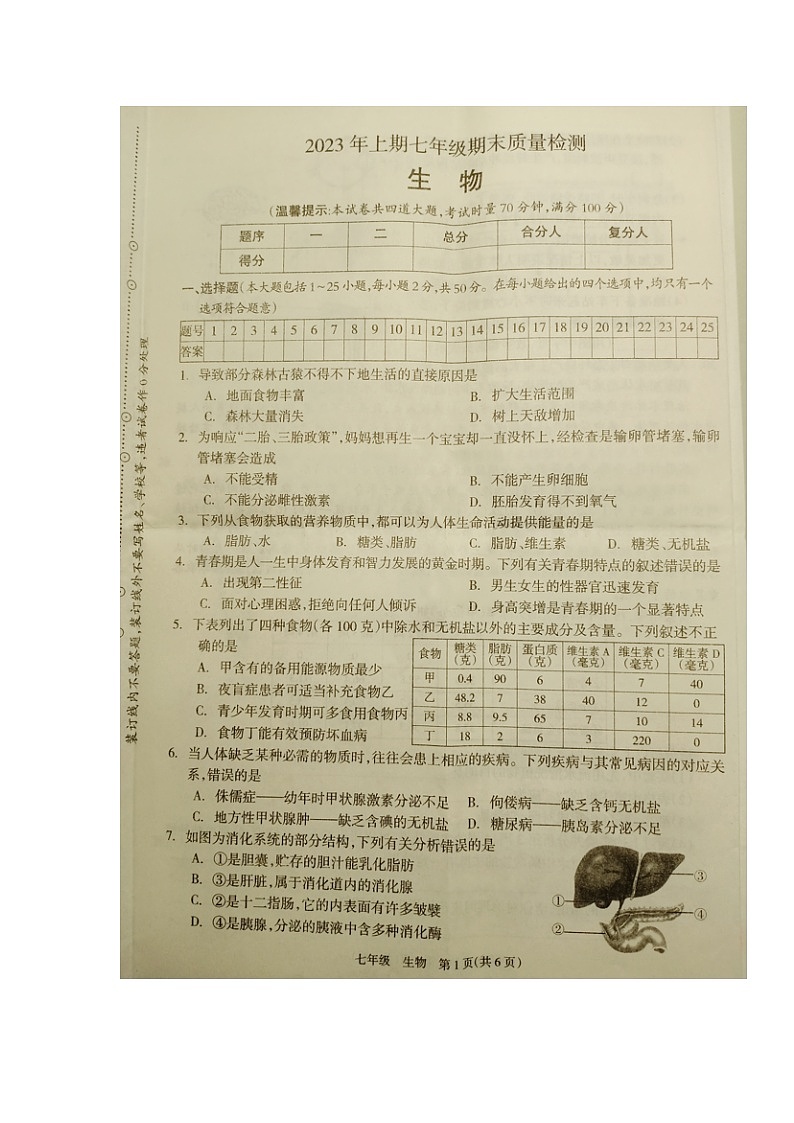 2023年上期七年级期末质量检测
生 物
(温馨提示:本试卷共四道大题,考试时量70分钟,满分100分)
题序 一 二 总分 合分人 复分人
得分
一、选择题(本大题包括1~25小题,每小题2分,共50分。在每小题给出的四个选项中,均只有一个
选项符合题意)
题号 1 2 3 4 5 6 7 8 9 10 11 12 13 14 15 16 17 18 19 20 21 22 23 24 25
答案
1. 导致部分森林古猿不得不下地生活的直接原因是
A. 地面食物丰富 B. 扩大生活范围
C. 森林大量消失 D. 树上天敌增加
2. 为响应“二胎、三胎政策”,妈妈想再生一个宝宝却一直没怀上,经检查是输卵管堵塞,输卵
管堵塞会造成
A. 不能受精 B. 不能产生卵细胞
C. 不能分泌雌性激素 D. 胚胎发育得不到氧气
3. 下列从食物获取的营养物质中,都可以为人体生命活动提供能量的是
A. 脂肪、水 B. 糖类、脂肪 C. 脂肪、维生素 D. 糖类、无机盐
4. 青春期是人一生中身体发育和智力发展的黄金时期。下列有关青春期特点的叙述错误的是
A. 出现第二性征 B. 男生女生的性器官迅速发育
C. 面对心理困惑,拒绝向任何人倾诉 D. 身高突增是青春期的一个显著特点
5. 下表列出了四种食物(各100克)中除水和无机盐以外的主要成分及含量。下列叙述不正
确的是
A. 甲含有的备用能源物质最少
B. 夜盲症患者可适当补充食物乙
C. 青少年发育时期可多食用食物丙
D. 食物丁能有效预防坏血病
食物 糖类(克) 脂肪(克) 蛋白质(克) 维生素A(毫克) 维生素C(毫克) 维生素D(毫克)
甲 0.4 90 6 4 7 40
乙 48.2 7 38 40 12 0
丙 8.8 9.5 65 7 10 14
丁 18 2 6 3 220 0
6. 当人体缺乏某种必需的物质时,往往会患上相应的疾病。下列疾病与其常见病因的对应关
系,错误的是
A. 侏儒症——幼年时甲状腺激素分泌不足 B. 佝偻病——缺乏含钙无机盐
C. 地方性甲状腺肿——缺乏含碘的无机盐 D. 糖尿病——胰岛素分泌不足
7. 如图为消化系统的部分结构,下列有关分析错误的是
A. ①是胆囊,贮存的胆汁能乳化脂肪
B. ③是肝脏,属于消化道内的消化腺
C. ②是十二指肠,它的内表面有许多皱襞
D. ④是胰腺,分泌的胰液中含多种消化酶
③
①
④
②
七年级 生物 第1页(共6页)
装订线内不要答题,装订线外不要写姓名、学校等,违者试卷作0分处理